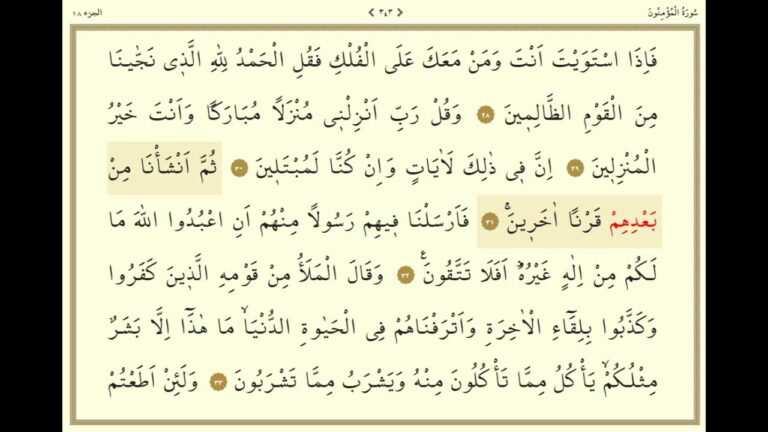 سُورَةُ الْمُؤْمِنُونَ ٣٤٣ الجزء ١٨
فَاِذَا اسْتَوَيْتَ اَنْتَ وَمَنْ مَعَكَ عَلَى الْفُلْكِ فَقُلِ الْحَمْدُ لِلّٰهِ الَّذ۪ي نَجّٰينَا
مِنَ الْقَوْمِ الظَّالِم۪ينَ ٢٨ وَقُلْ رَبِّ اَنْزِلْن۪ي مُنْزَلًا مُبَارَكًا وَاَنْتَ خَيْرُ
الْمُنْزِل۪ينَ ٢٩ اِنَّ ف۪ي ذٰلِكَ لَاٰيَاتٍ وَاِنْ كُنَّا لَمُبْتَل۪ينَ ٣٠ ثُمَّ اَنْشَأْنَا مِنْ
بَعْدِهِمْ قَرْنًا اٰخَر۪ينَۚ ٣١ فَاَرْسَلْنَا ف۪يهِمْ رَسُولًا مِنْهُمْ اَنِ اعْبُدُوا اللّٰهَ مَا
لَكُمْ مِنْ اِلٰهٍ غَيْرُهُۜ اَفَلَا تَتَّقُونَ۟ ٣٢ وَقَالَ الْمَلَأُ مِنْ قَوْمِهِ الَّذ۪ينَ كَفَرُوا
وَكَذَّبُوا بِلِقَٓاءِ الْاٰخِرَةِ وَاَتْرَفْنَاهُمْ فِي الْحَيٰوةِ الدُّنْيَاۙ مَا هٰذَٓا اِلَّا بَشَرٌ
مِثْلُكُمْۙ يَأْكُلُ مِمَّا تَأْكُلُونَ مِنْهُ وَيَشْرَبُ مِمَّا تَشْرَبُونَ ٣٣ وَلَئِنْ اَطَعْتُمْ